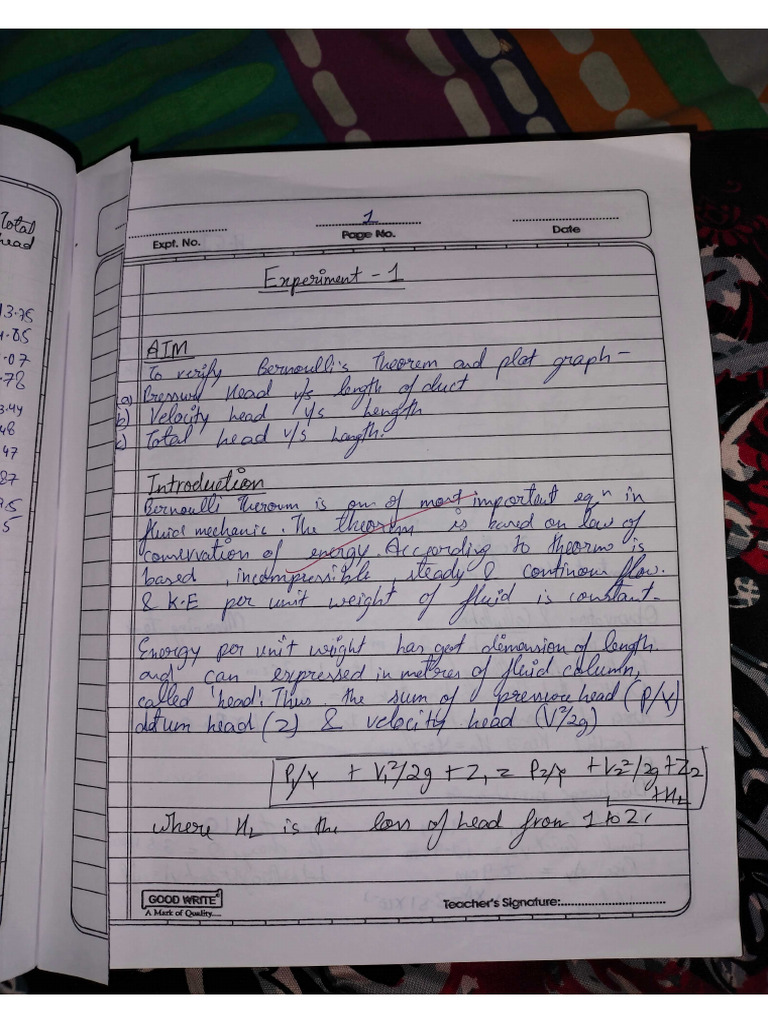 Total
head
13.75
.05
.07
.78
3.44
48
47
87
9.5
5
1
Expt. No.
Page No.
Date
Experiment - 1
AIM
To verify Bernoulli's Theorem and plot graph -
a) Pressure Head v/s length of duct
b) Velocity head v/s Length
c) Total head v/s Length.
Introduction
Bernoulli Theroum is on of most important eqn in
fluid mechanic. The theorem is based on law of
conservation of energy. According to theorm is
based, incompressible, steady & continous flow.
& K.E per unit weight of fluid is constant.
Energy per unit wight has got dimension of length.
and can expressed in metres of fluid column,
called 'head'. Thus the sum of pressure head (P/γ)
datum head (Z) & velocity head (V²/2g)
P₁/γ + V₁²/2g + Z₁ = P₂/γ + V₂²/2g + Z₂
+ HL
where HL is the loss of head from 1 to 2.
GOOD WRITE
A Mark of Quality....
Teacher's Signature: